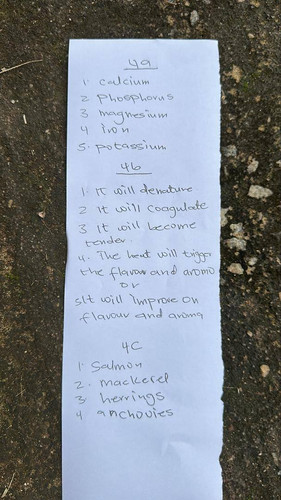 4a
1. Calcium
2 Phosphorus
3 magnesium
4 Iron
5. potassium
4b
1. It will denature
2 It will Coagulate
3 It will become
tender.
4. The heat will trigger
the flavour and aroma
or
5 It will improve on
flavour and aroma
4C
1 Salmon
2. mackerel
3 herrings
4 anchovies